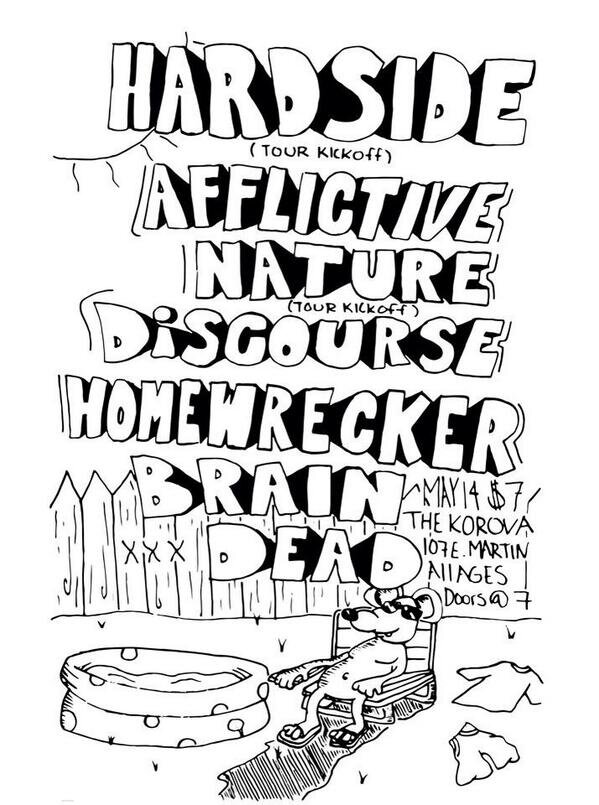 HARDSIDE
(TOUR KICKOFF)
AFFLICTIVE
NATURE
(TOUR KICKOFF)
DiSCOURSE
HOMEWRECKER
BRAIN
DEAD
XXX
MAY 14 $7
THE KOROVA
107 E. MARTIN
All AGES
DOORS @ 7